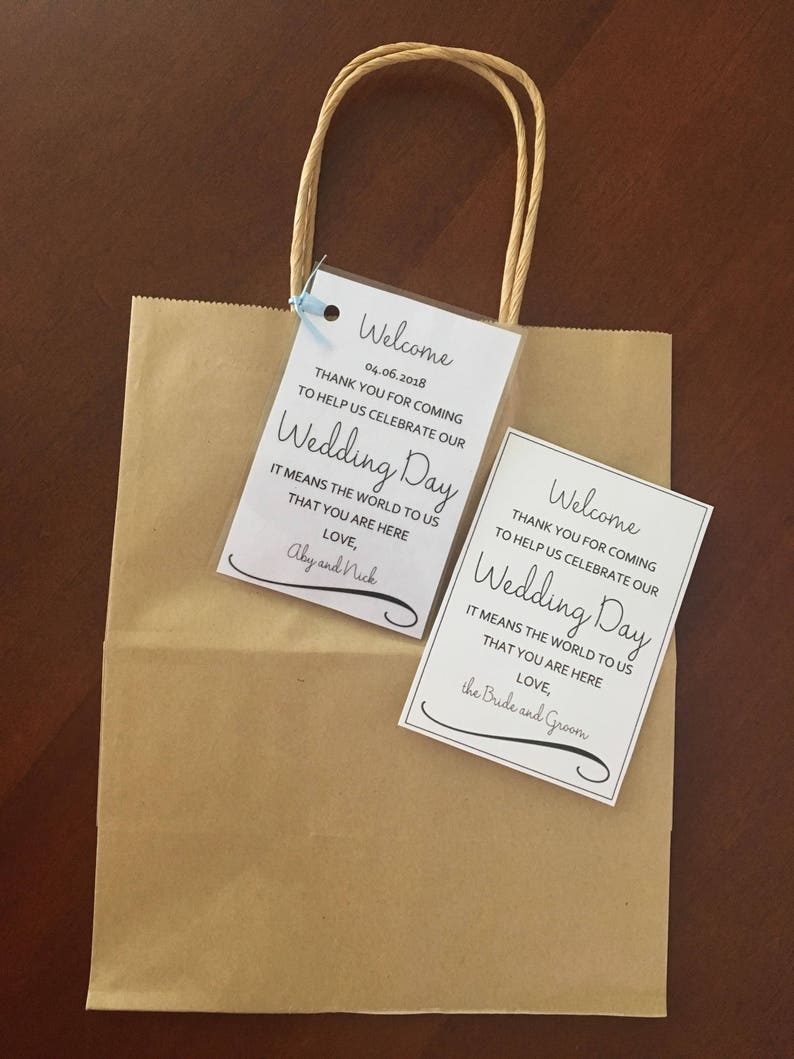 Welcome
04.06.2018
THANK YOU FOR COMING
TO HELP US CELEBRATE OUR
Wedding Day
IT MEANS THE WORLD TO US
THAT YOU ARE HERE
LOVE,
Aby and Nick
Welcome
THANK YOU FOR COMING
TO HELP US CELEBRATE OUR
Wedding Day
IT MEANS THE WORLD TO US
THAT YOU ARE HERE
LOVE,
the Bride and Groom